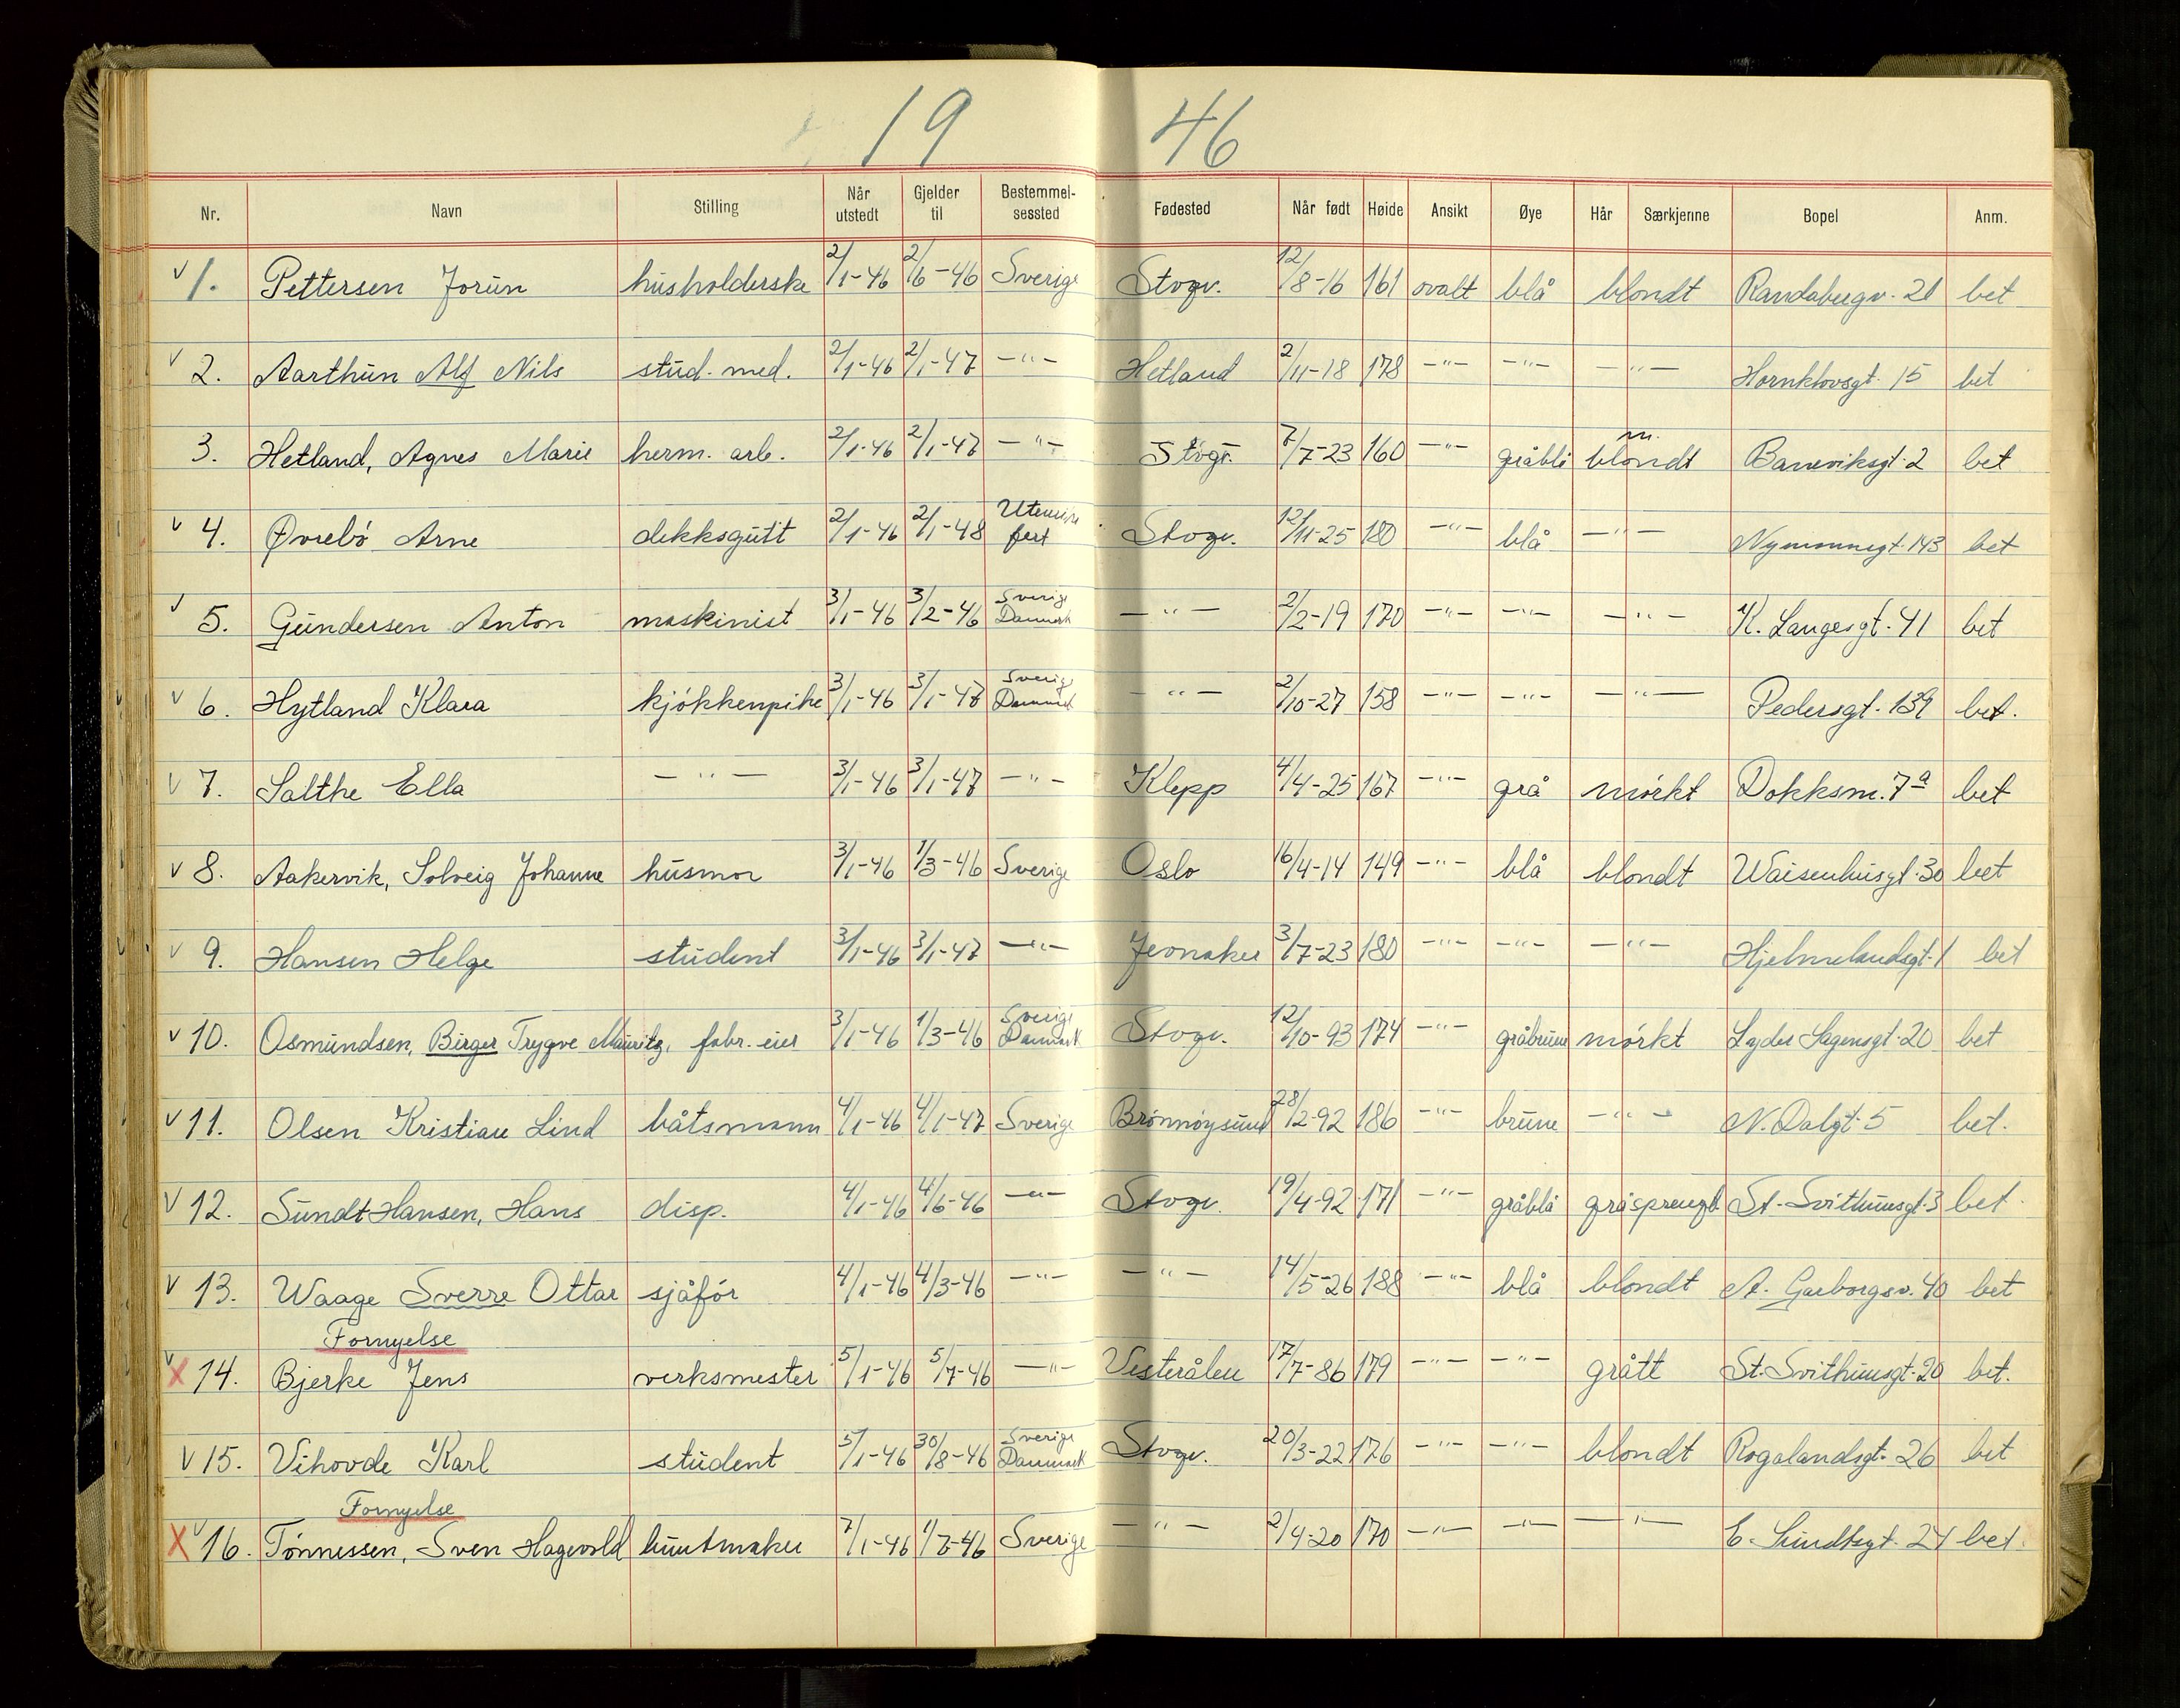 19 46
Nr. Navn Stilling Når utstedt Gjelder til Bestemmel-sessted Fødested Når født Høide Ansikt Øye Hår Særkjenne Bopel Anm.
v 1. Pettersen Jorun husholderske 2/1-46 2/6-46 Sverige Stvgr. 12/8-16 161 ovalt blå blondt Randabergv. 21 bet
v 2. Aarthun Alf Nils stud. med. 2/1-46 2/1-47 -"- Hetland 2/11-18 178 -"- -"- -"- Hornklovsgt. 15 bet
3. Hetland, Agnes Marie herm. arb. 2/1-46 2/1-47 -"- Stvgr. 7/7-23 160 -"- gråblå m. blondt Baneviksgt. 2 bet
v 4. Øvrebö Arne dekksgutt 2/1-46 2/1-48 Utenriks fart Stvgr. 12/11-25 180 -"- blå -"- Nymannsgt. 143 bet
v 5. Gundersen Anton maskinist 3/1-46 3/2-46 Sverige Danmark -"- 2/2-19 170 -"- -"- -"- K. Langesgt. 41 bet
v 6. Hytland Klara kjökkenpike 3/1-46 3/1-48 Sverige Danmark -"- 2/10-27 158 -"- -"- -"- Pedersgt. 139 bet.
v 7. Salthe Ella -"- 3/1-46 3/1-47 -"- Klepp 4/4-25 167 -"- grå mörkt Dokksm. 7a bet
v 8. Aakervik, Solveig Johanne husmor 3/1-46 1/3-46 Sverige Oslo 16/4-14 149 -"- blå blondt Waisenhusgt. 30 bet
v 9. Hansen Helge student 3/1-46 3/1-47 -"- Jevnaker 3/7-23 180 -"- -"- -"- Hjelmelandsgt. 1 bet
v 10. Osmundsen, Birger Trygve Mauritz, fabr. eier 3/1-46 1/3-46 Sverige Danmark Stvgr. 12/10-93 174 -"- gråbrune mörkt Lyder Sagensgt. 20 bet
v 11. Olsen Kristian Lind båtsmann 4/1-46 4/1-47 Sverige Brönnöysund 28/2-92 186 -"- brune -"- N. Dalgt. 5 bet.
v 12. Sundt Hansen, Hans disp. 4/1-46 4/6-46 -"- Stvgr. 19/4-92 171 -"- gråblå gråsprengt St. Svithunsgt. 3 bet
v 13. Waage Sverre Ottar sjåför 4/1-46 4/3-46 -"- -"- 14/5-26 188 -"- blå blondt A. Garborgsv. 40 bet
Fornyelse
v X 14. Bjerke Jens verksmester 5/1-46 5/7-46 -"- Vesterålen 17/7-86 179 -"- -"- grått St. Svithunsgt. 20 bet.
v 15. Vihovde Karl student 5/1-46 30/8-46 Sverige Danmark Stvgr. 20/3-22 176 -"- -"- blondt Rogalandsgt. 26 bet
Fornyelse
X v 16. Tönnessen, Sven Hagevold buntmaker 7/1-46 Sverige -"- 2/4-20 170 -"- -"- -"- E. Sundtsgt. 24 bet.